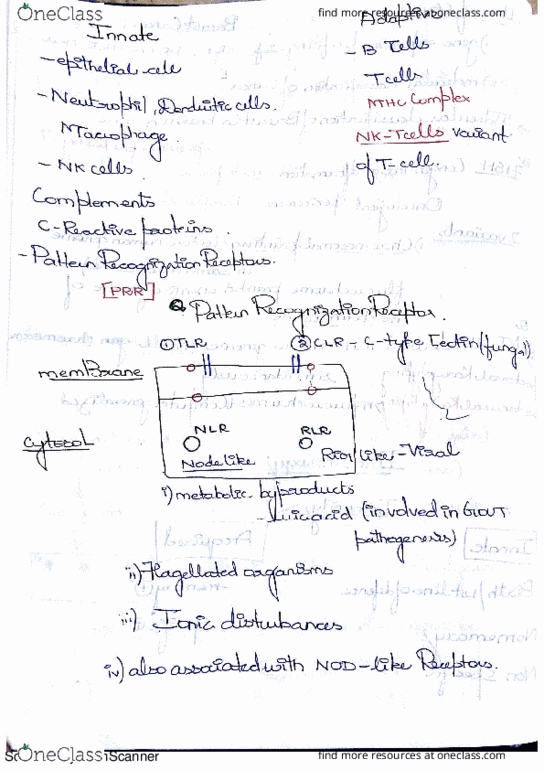 OneClass
find more resources at oneclass.com
Innate
Adaptive
- epithelial cell
- B Cells
- Neutrophil, Dendritic cells.
T cells
Macrophage.
MHC Complex
- NK cells.
NK-Tcells variant
of T-cell.
Complements
C-Reactive proteins.
- Pattern Recognization Receptors.
[PRR]
Pattern Recognization Receptor.
① TLR
② CLR - C-type Lectin (fungal)
membrane
cytosol
NLR
RLR
Node like
like - Viral
i) metabolic byproducts
- uric acid (involved in GOUT
pathogenesis)
ii) Flagellated organisms
iii) Ionic disturbances
iv) also associated with NOD-like Receptors.
OneClass
Scanner
find more resources at oneclass.com